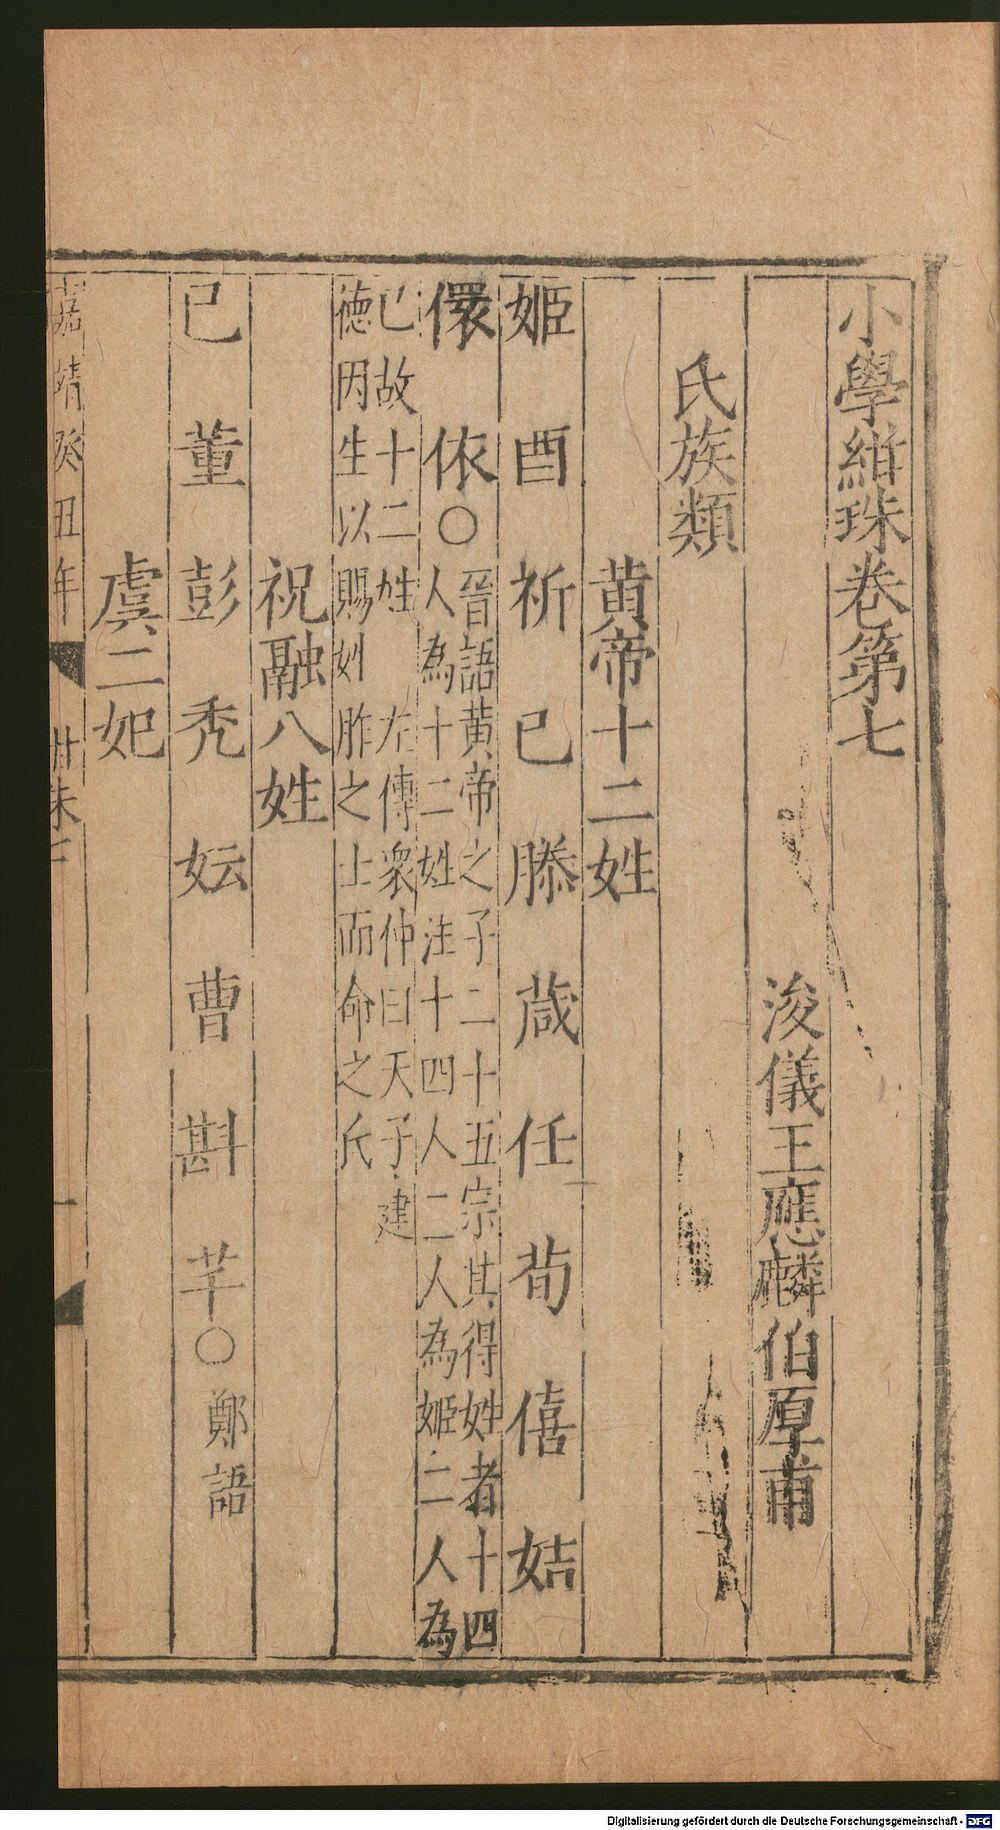 小學紺珠卷第七
浚儀王應麟伯厚甫
氏族類
黃帝十二姓
姬 酉 祈 己 滕 葴 任 荀 僖 姞
儇 依○晉語黃帝之子二十五宗其得姓者十四
人為十二姓注十四人二人為姬二人為
己故十二姓 左傳衆仲曰天子建
德因生以賜姓胙之土而命之氏
祝融八姓
己 董 彭 秃 妘 曹 斟 芊○鄭語
虞二妃
嘉靖癸丑年 一
Digitalisierung gefördert durch die Deutsche Forschungsgemeinschaft - DFG